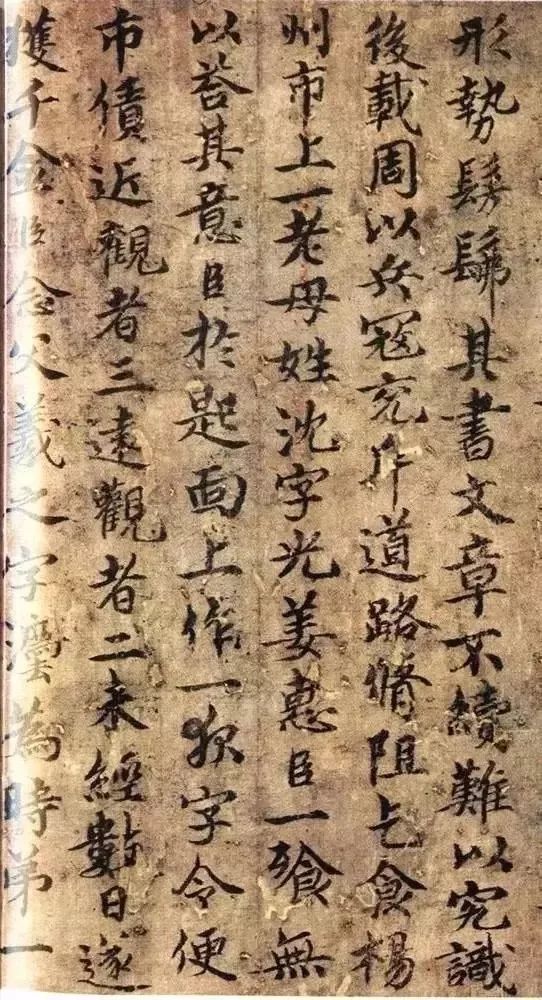 形勢髣髴其書文章不續難以究識
後載周以兵寇充斥道路脩阻乞食楊
州市上一老母姓沈字光姜惠臣一飱無
以荅其意臣扵匙面上作一夜字令便
市債近觀者三遠觀者二未經數日遂
獲千金臣念父羲之字灋為時第一